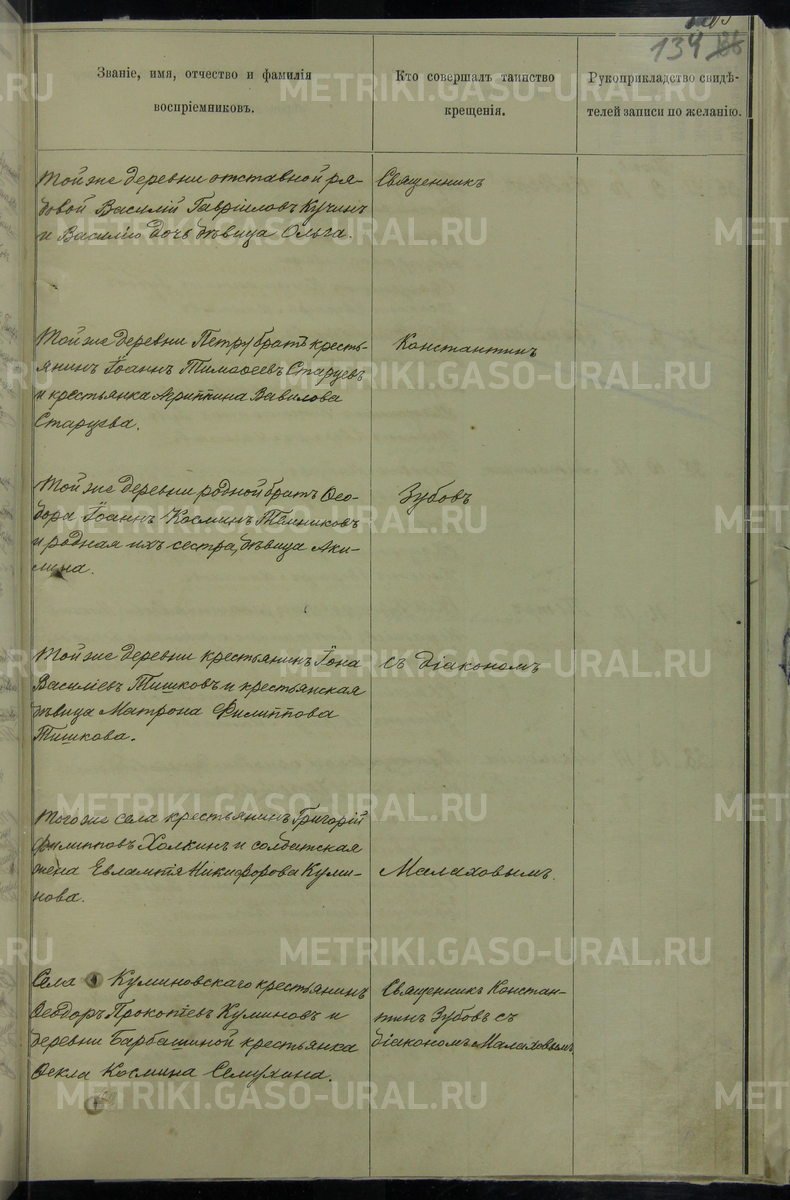 134
Званіе, имя, отчество и фамилія
воспріемниковъ.
Кто совершалъ таинство
крещенія.
Рукоприкладство свидѣ-
телей записи по желанію.
Той же деревни отставной ря-
довой Василій Гавріиловъ Кучинъ
и Василію дочь дѣвица Ольга.
Священникъ
Той же деревни Петру братъ кресть-
янинъ Іоаннъ Тимоѳеевъ Старцевъ
и крестьянка Агриппина Вавилова
Старцева.
Константинъ
Той же деревни родной братъ Ѳео-
дора Іоаннъ Космин Тѣнниковъ
и родная ихъ сестра, дѣвица Аки-
лина.
Зубовъ
Той же деревни крестьянинъ Іона
Василіевъ Тишковъ и крестьянская
дѣвица Матрона Филиппова
Тишкова.
съ діакономъ
Того же села крестьянинъ Григорій
Филипповъ Холкинъ и солдатская
жена Евлампія Никифорова Куми-
нова.
Малаховымъ.
Села Куминовскаго крестьянинъ
Ѳеодоръ Прокопіевъ Куминовъ и
деревни Барбашиной крестьянка
Ѳекла Космина Семухина.
Священникъ Констан-
тинъ Зубовъ съ
діакономъ Малаховымъ
METRIKI.GASO-URAL.RU